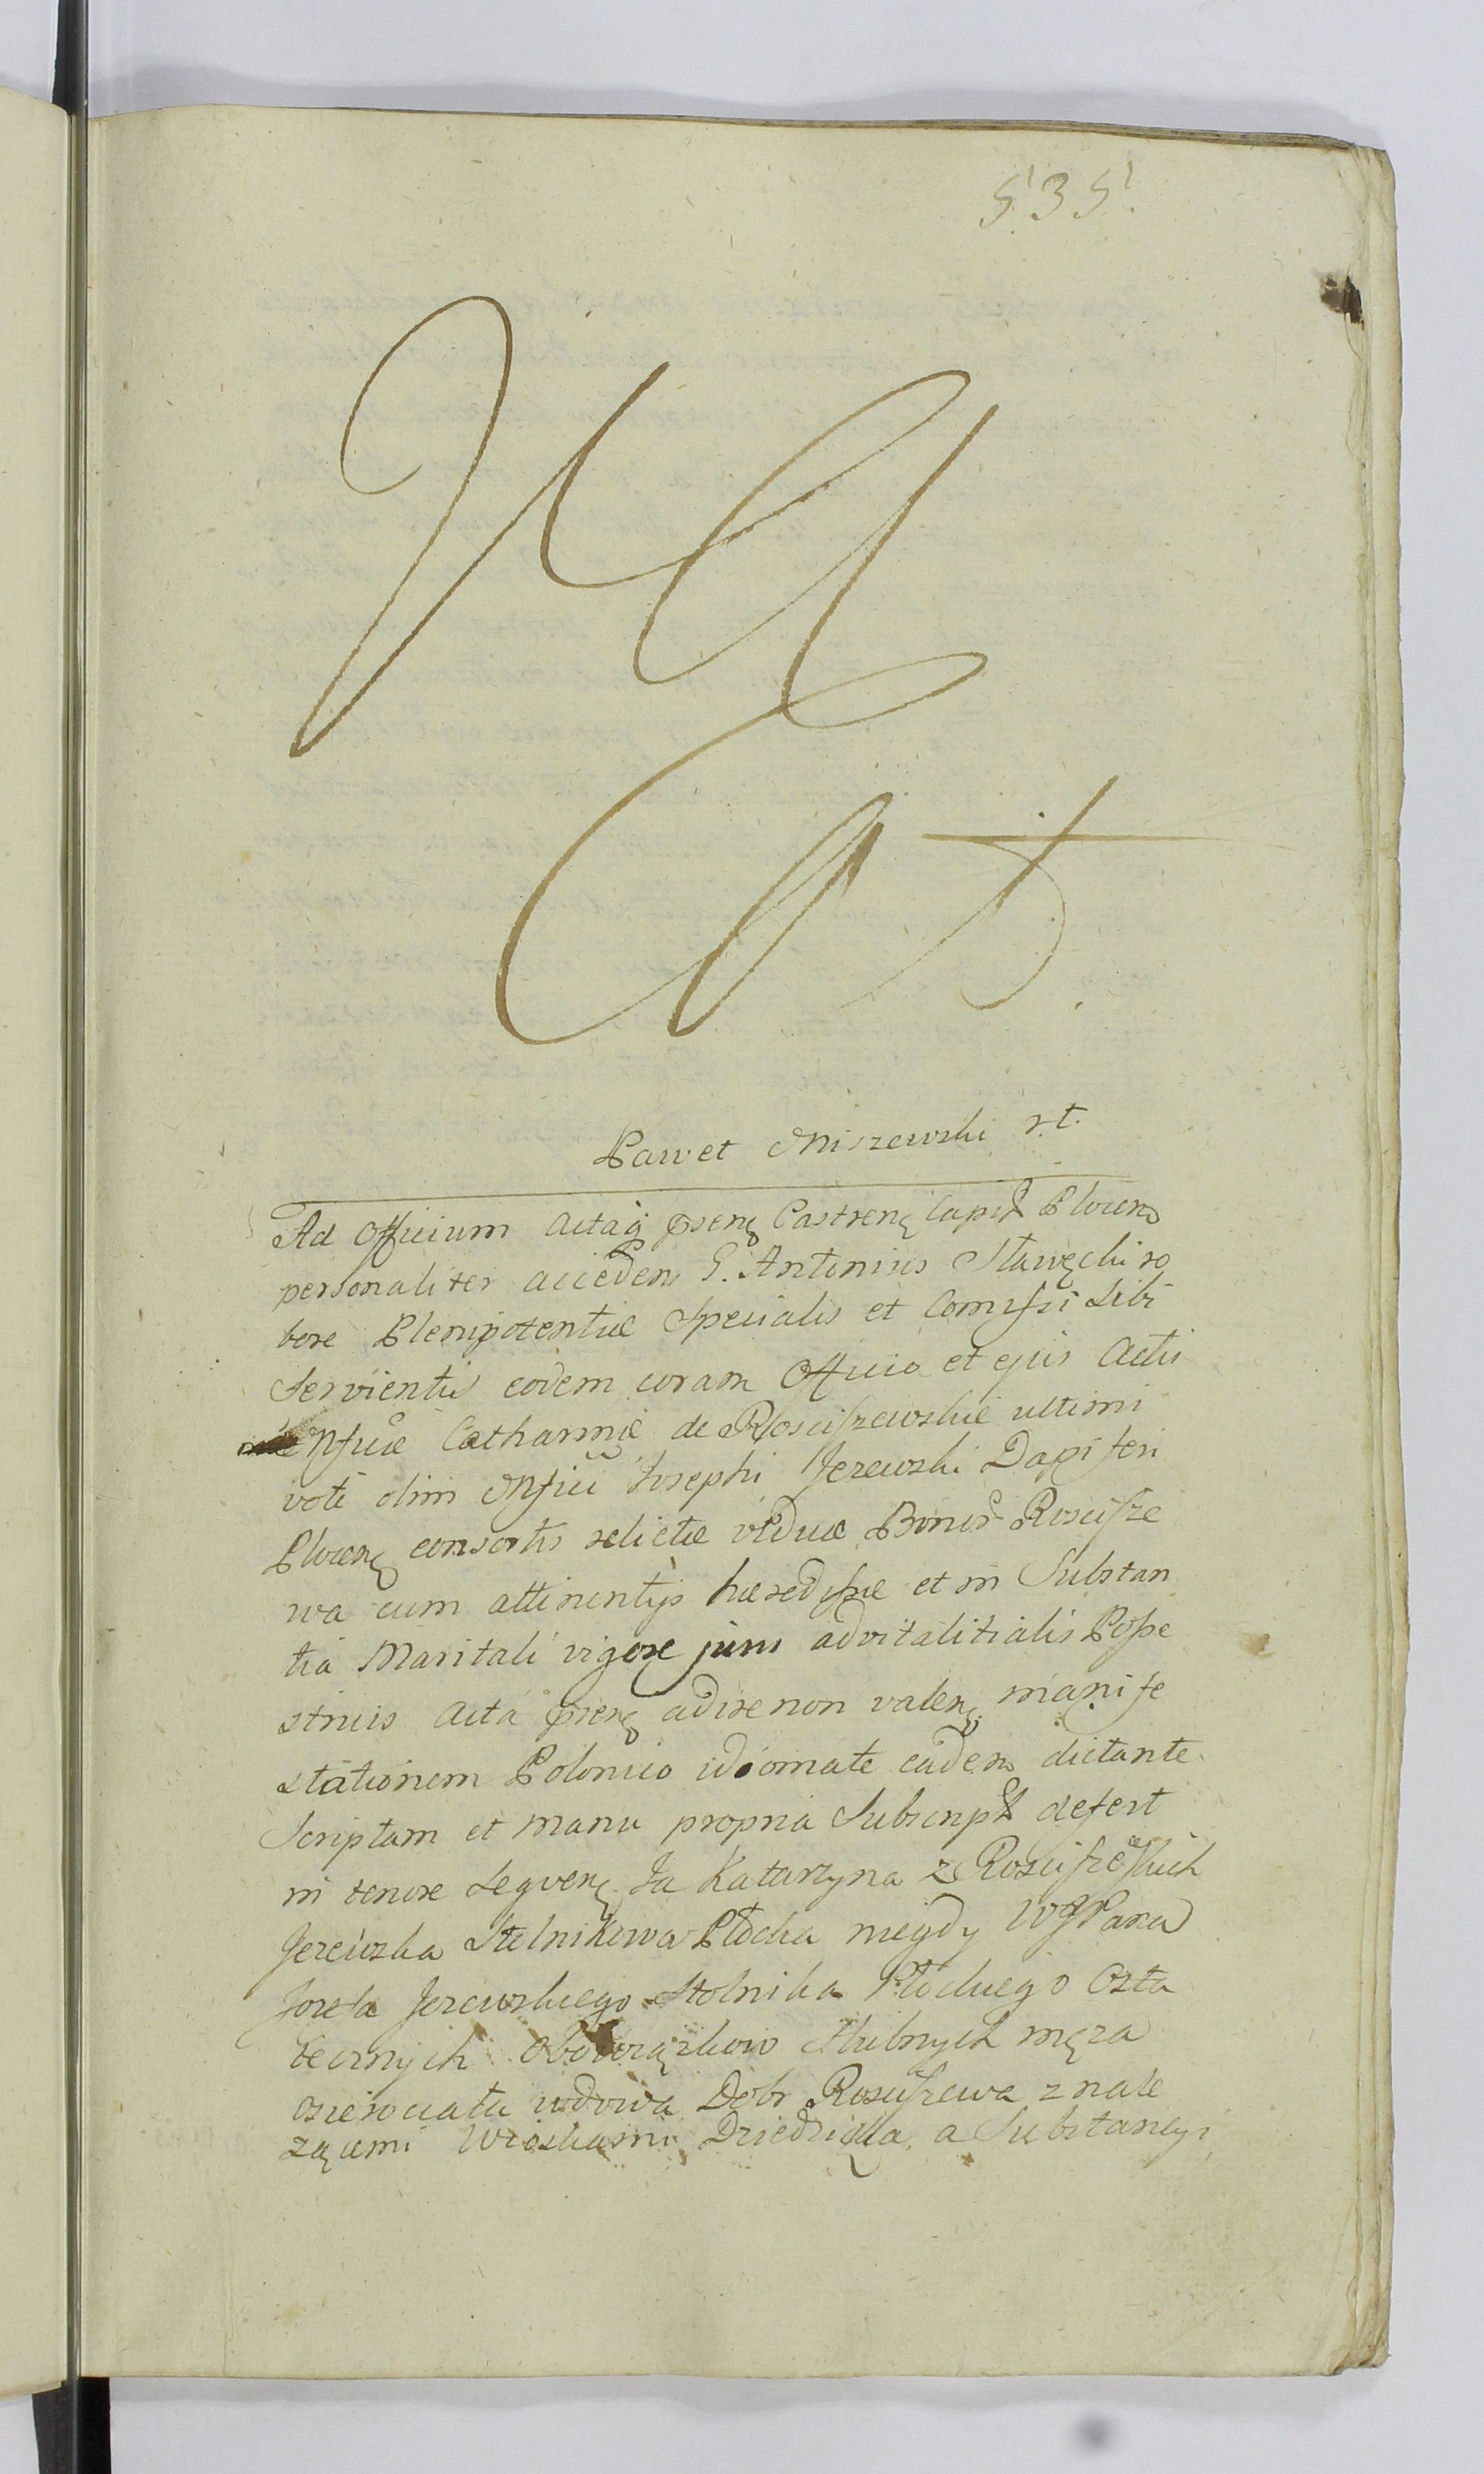 535.
Vacat
Paweł Niszewski r.t.
Ad Officium Actaq̃ pñsenę Castrenę Capit Plocen
personaliter accedens G. Antonius Sławęcki ro
bore Plenipotentiæ Specialis et Comissi Sibi
Servientis eodem coram Officio et ejus Actis
Mfcæ Catharinæ de Rosciszewskie ultimi
voti olim Mfici Josephi Jezewski Dapiferi
Plocenę consortis relictæ viduæ, Bonor Roscisze
wa cum attinentijs hæredissæ et in Substan
tia Maritali vigore juris advitalitialis Posse
stricis Acta pñsenę adire non valenę manife
stationem Polonico idiomate eadem dictante
Scriptam et manu propria Subscript defert
in tenore Seqvenę. Ja Katarzyna z Rosciszewskich
Jezewska Stolnikowa Płocka niegdy WJPana
Jozefa Jezewskiego Stolnika Płockiego Osta
tecznych Obowiązkow Slubnych męza
osierociała wdowa Dobr Rosciszewa z nale
zącemi Wioskami Dziedziczka, a Substancyi